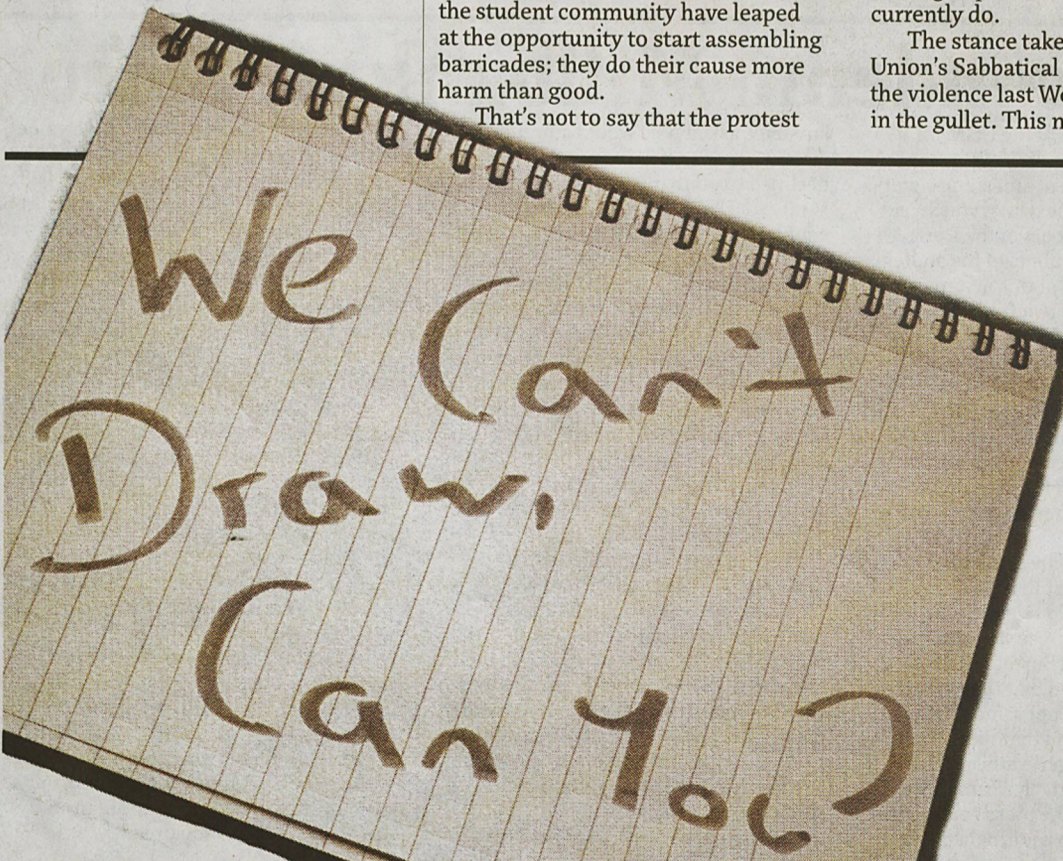 the student community have leaped
at the opportunity to start assembling
barricades; they do their cause more
harm than good.
That's not to say that the protest
currently do.
The stance take
Union's Sabbatical
the violence last We
in the gullet. This n
We
Can't
Draw,
Can You?